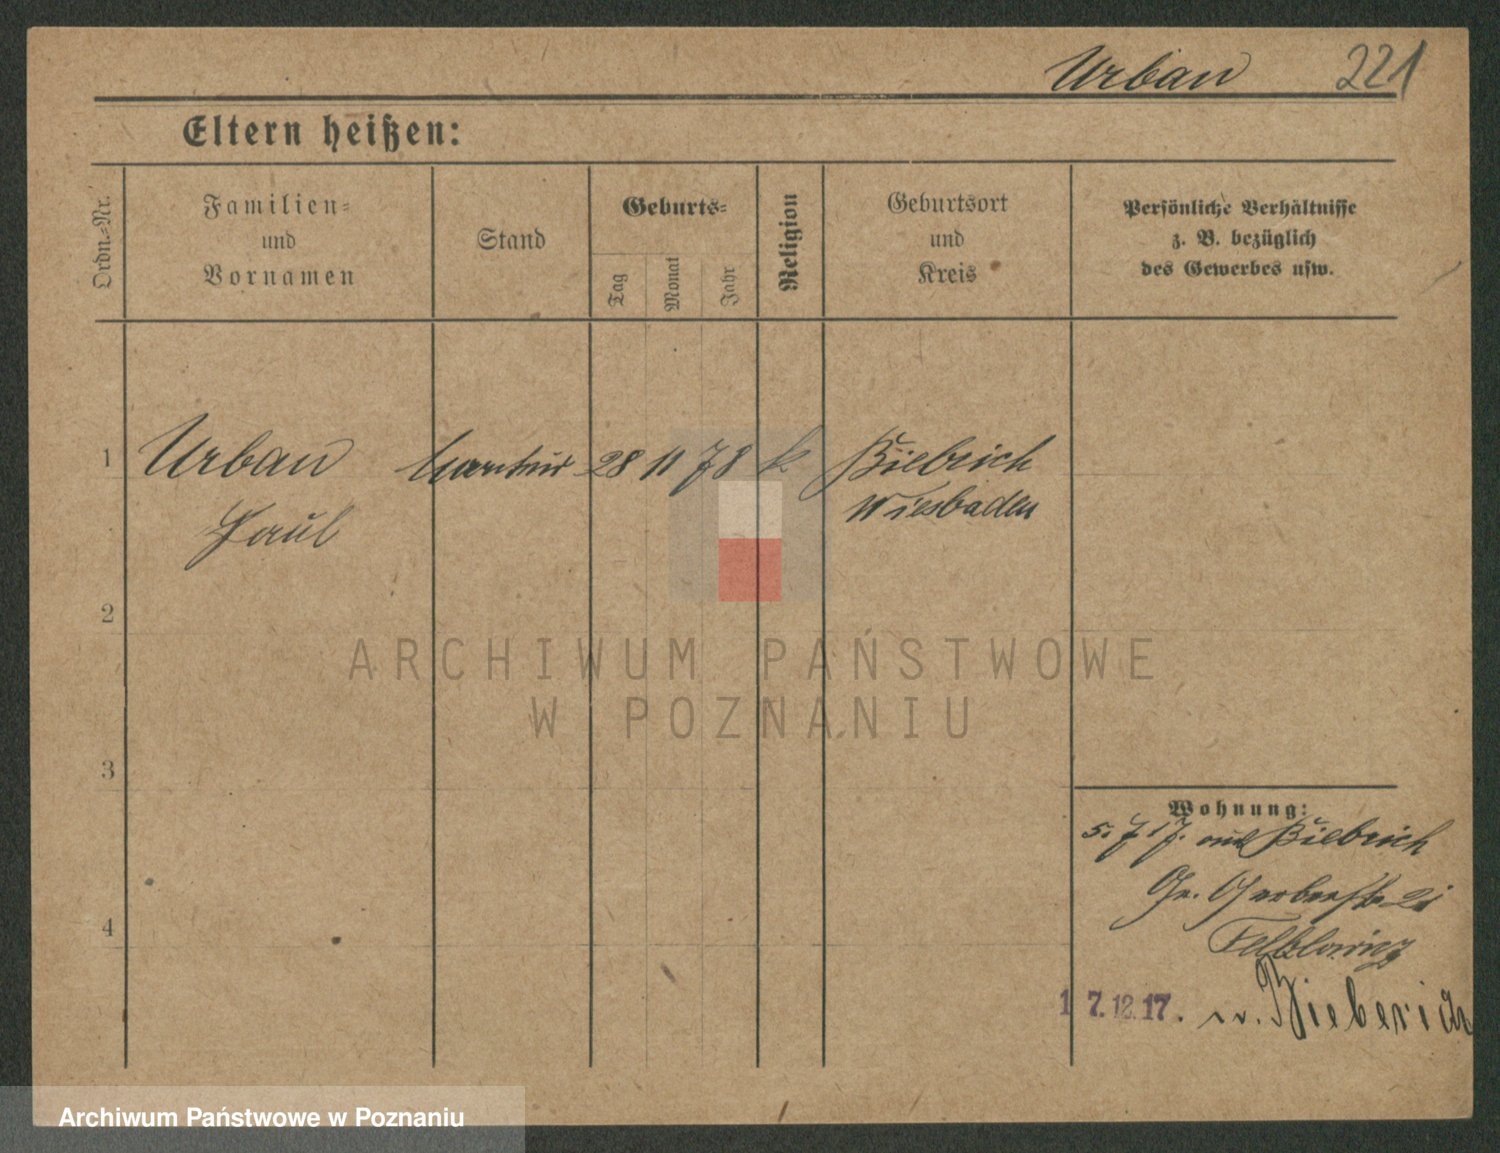 Urban 221
Eltern heißen:
Ordn.-Nr.
Familien-
und
Vornamen
Stand
Geburts-
Tag
Monat
Jahr
Religion
Geburtsort
und
Kreis
Persönliche Verhältnisse
z. B. bezüglich
des Gewerbes usw.
1 Urban 28 11 78 k Biebrich
Wiesbaden
Paul
2
3
4
Wohnung:
5. 7 17. aus Biebrich
Gr. Gerberstr. 21
17.12.17. n. Bieberich
ARCHIWUM PAŃSTWOWE
W POZNANIU
Archiwum Państwowe w Poznaniu